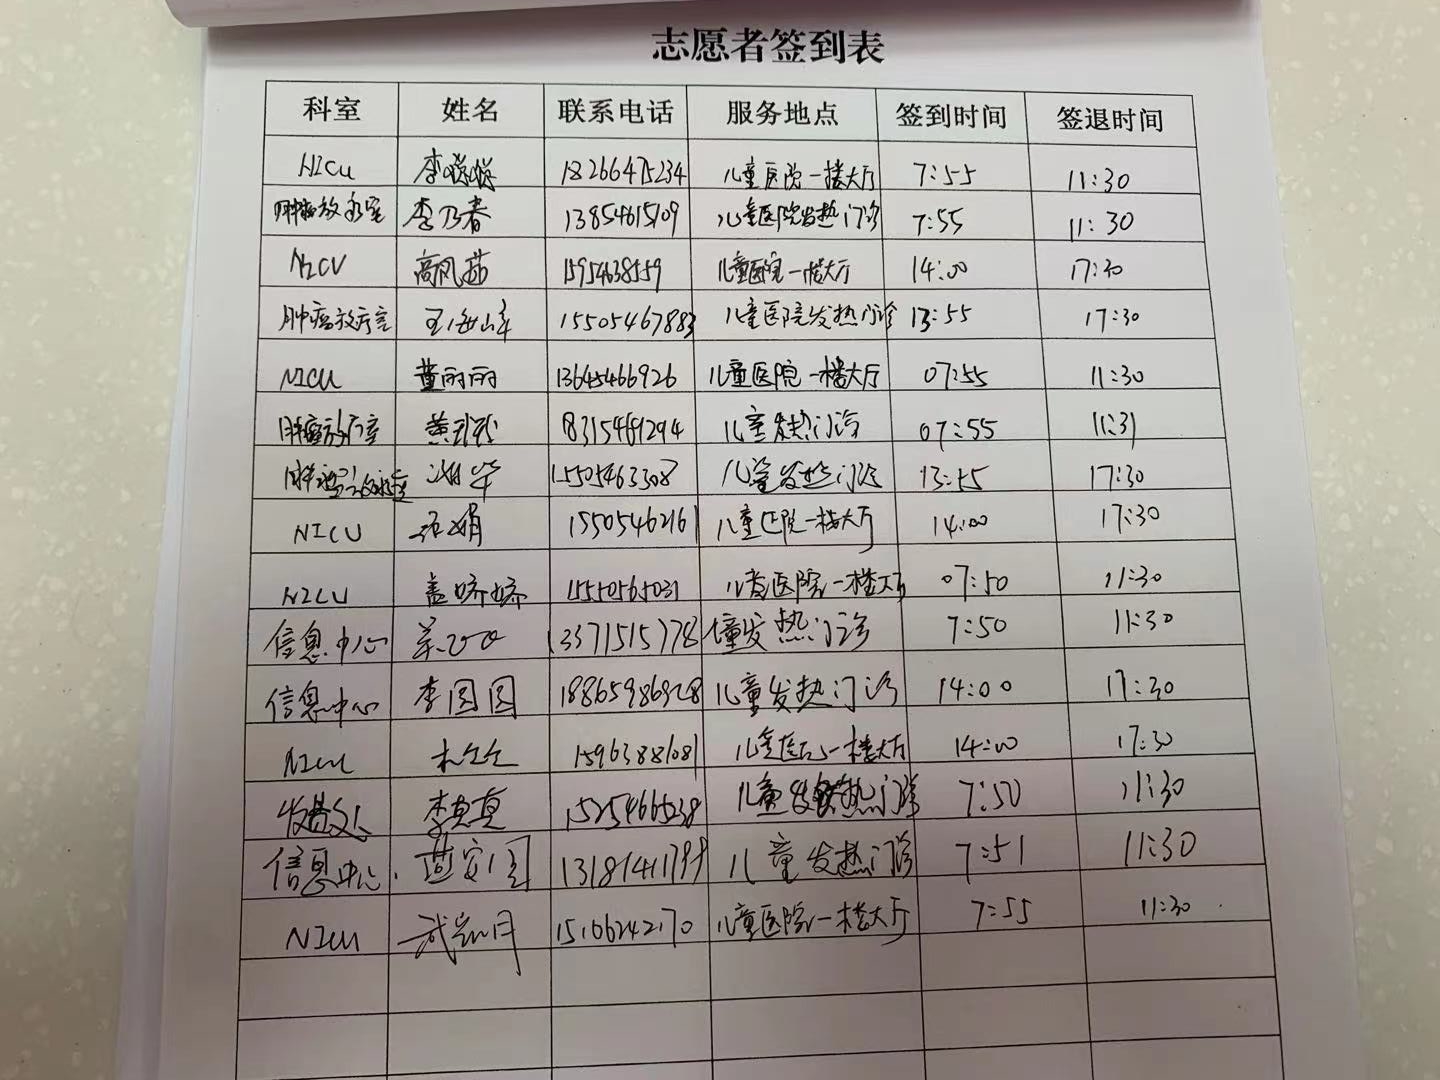 志愿者签到表
科室 姓名 联系电话 服务地点 签到时间 签退时间
NICU 李 18266475234 儿童医院一楼大厅 7:55 11:30
肿瘤放疗室 李乃春 13854615109 儿童医院发热门诊 7:55 11:30
NICU 高凤茹 15954638559 儿童医院一楼大厅 14:00 17:30
肿瘤放疗室 王海峰 15505467883 儿童医院发热门诊 13:55 17:30
NICU 董丽丽 13645466926 儿童医院一楼大厅 07:55 11:30
肿瘤放疗室 黄 18315461294 儿童发热门诊 07:55 11:31
肿瘤放疗室 15505463308 儿童发热门诊 13:55 17:30
NICU 张娟 15505462161 儿童医院一楼大厅 14:00 17:30
NICU 盖娇娇 15550565031 儿童医院一楼大厅 07:50 11:30
信息中心 13371515778 儿童发热门诊 7:50 11:30
信息中心 李园园 18865986928 儿童发热门诊 14:00 17:30
NICU 15963881081 儿童医院一楼大厅 14:00 17:30
李真真 15254665238 儿童发热门诊 7:50 11:30
信息中心 燕安国 13181411799 儿童发热门诊 7:51 11:30
NICU 武 15166242170 儿童医院一楼大厅 7:55 11:30